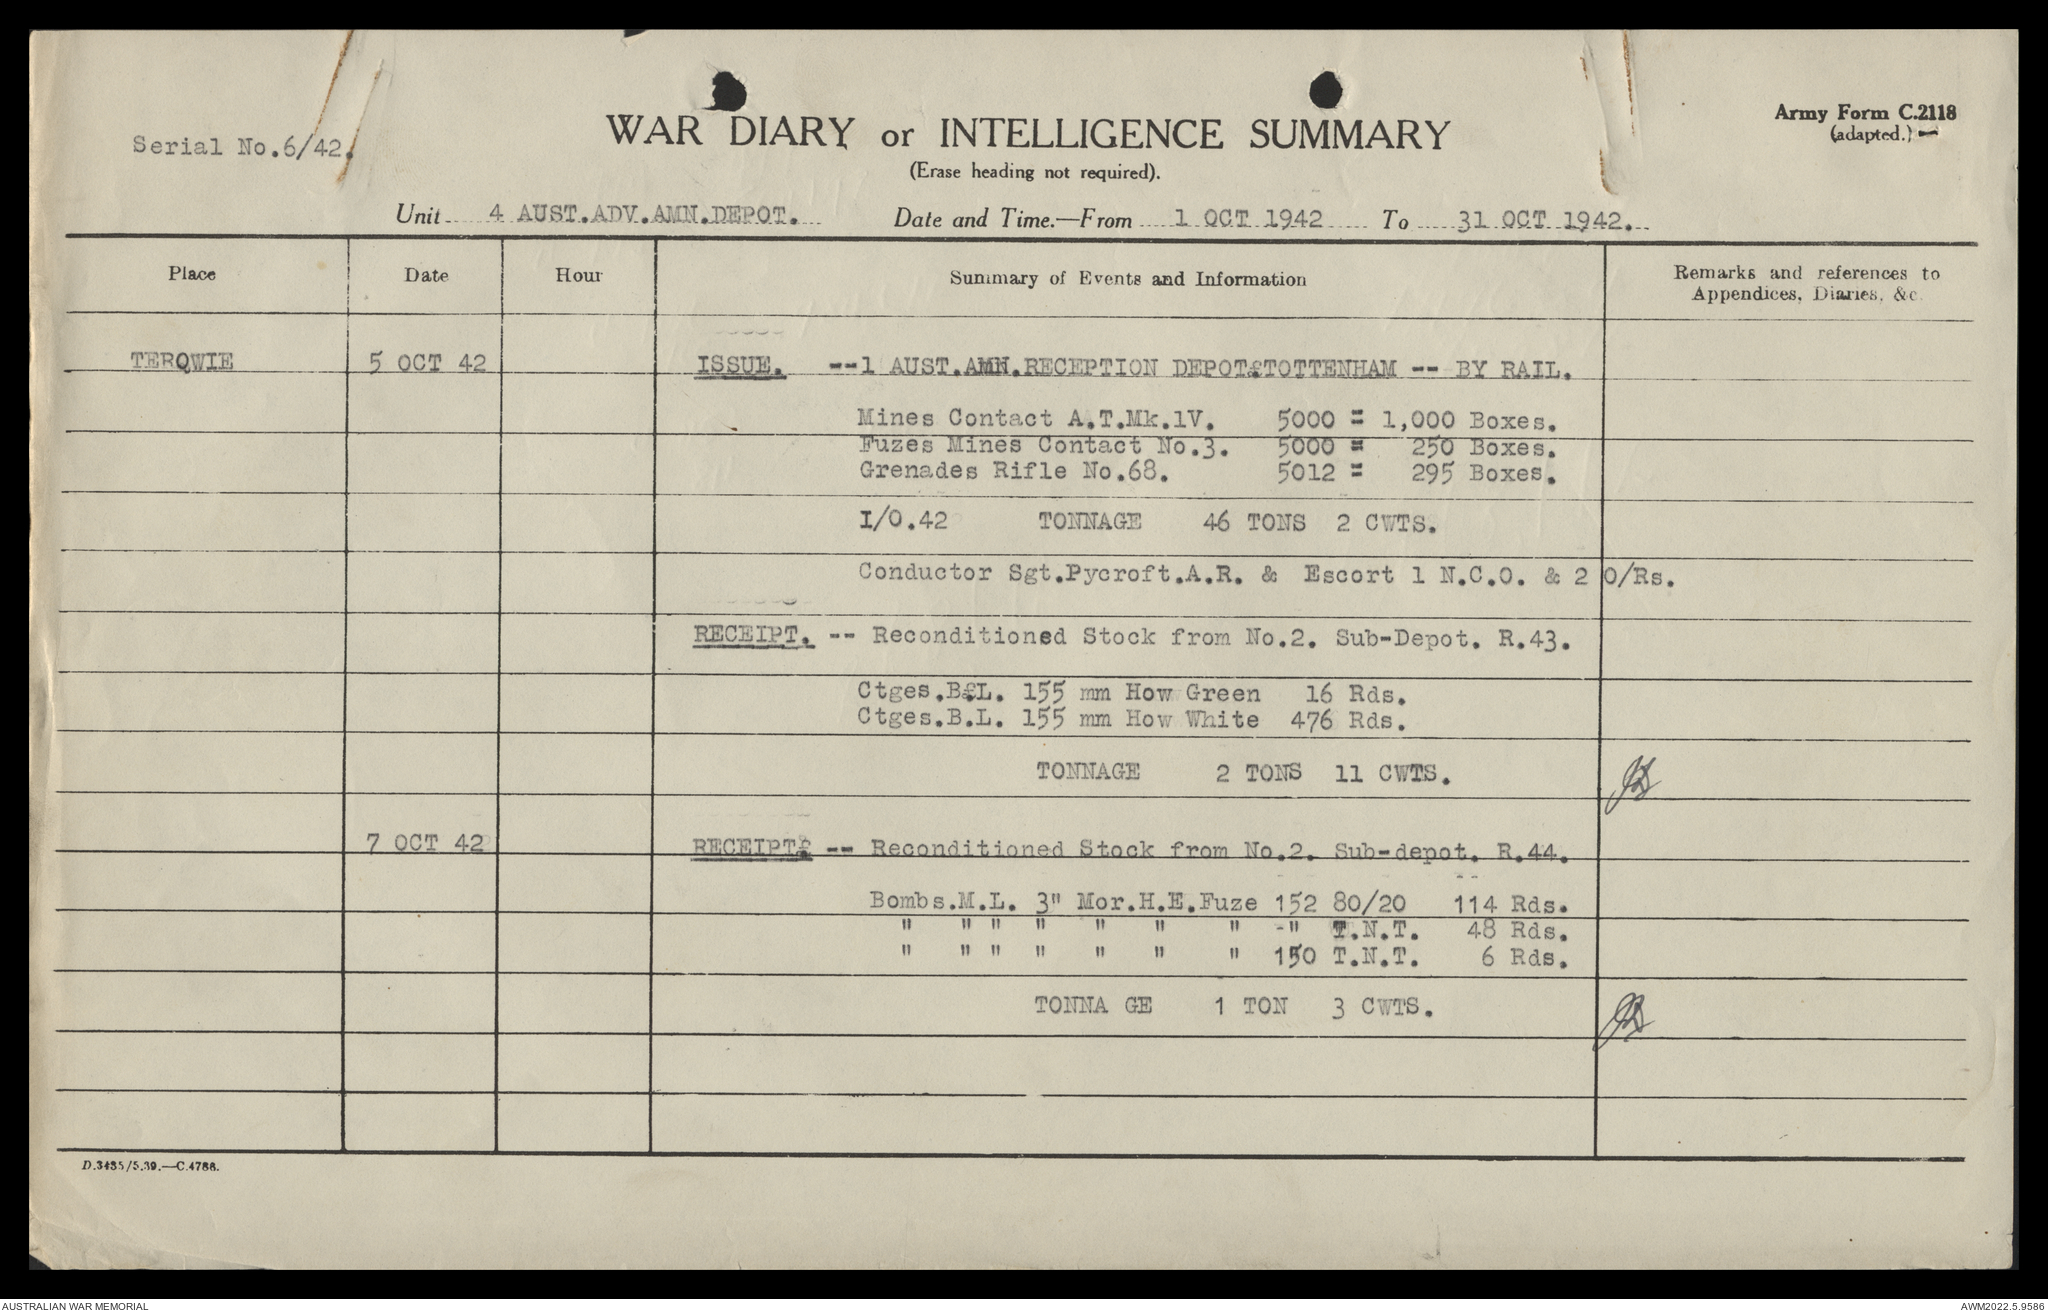 Serial No.6/42.
WAR DIARY or INTELLIGENCE SUMMARY
Army Form C.2118
(adapted.)
(Erase heading not required).
Unit 4 AUST.ADV.AMN.DEPOT. Date and Time.—From 1 OCT 1942 To 31 OCT 1942.
Place Date Hour Summary of Events and Information Remarks and references to
Appendices, Diaries, &c.
TEROWIE 5 OCT 42 ISSUE. --1 AUST.AMN.RECEPTION DEPOT.TOTTENHAM -- BY RAIL.
Mines Contact A.T.Mk.1V. 5000 = 1,000 Boxes.
Fuzes Mines Contact No.3. 5000 = 250 Boxes.
Grenades Rifle No.68. 5012 = 295 Boxes.
I/O.42 TONNAGE 46 TONS 2 CWTS.
Conductor Sgt.Pycroft.A.R. & Escort 1 N.C.O. & 2 O/Rs.
RECEIPT. -- Reconditioned Stock from No.2. Sub-Depot. R.43.
Ctges.B.L. 155 mm How Green 16 Rds.
Ctges.B.L. 155 mm How White 476 Rds.
TONNAGE 2 TONS 11 CWTS.
7 OCT 42 RECEIPT. -- Reconditioned Stock from No.2. Sub-depot. R.44.
Bombs.M.L. 3" Mor.H.E.Fuze 152 80/20 114 Rds.
" " " " " " " -" T.N.T. 48 Rds.
" " " " " " " 150 T.N.T. 6 Rds.
TONNA GE 1 TON 3 CWTS.
D.3435/5.39.—C.4786.
AUSTRALIAN WAR MEMORIAL AWM2022.5.9586